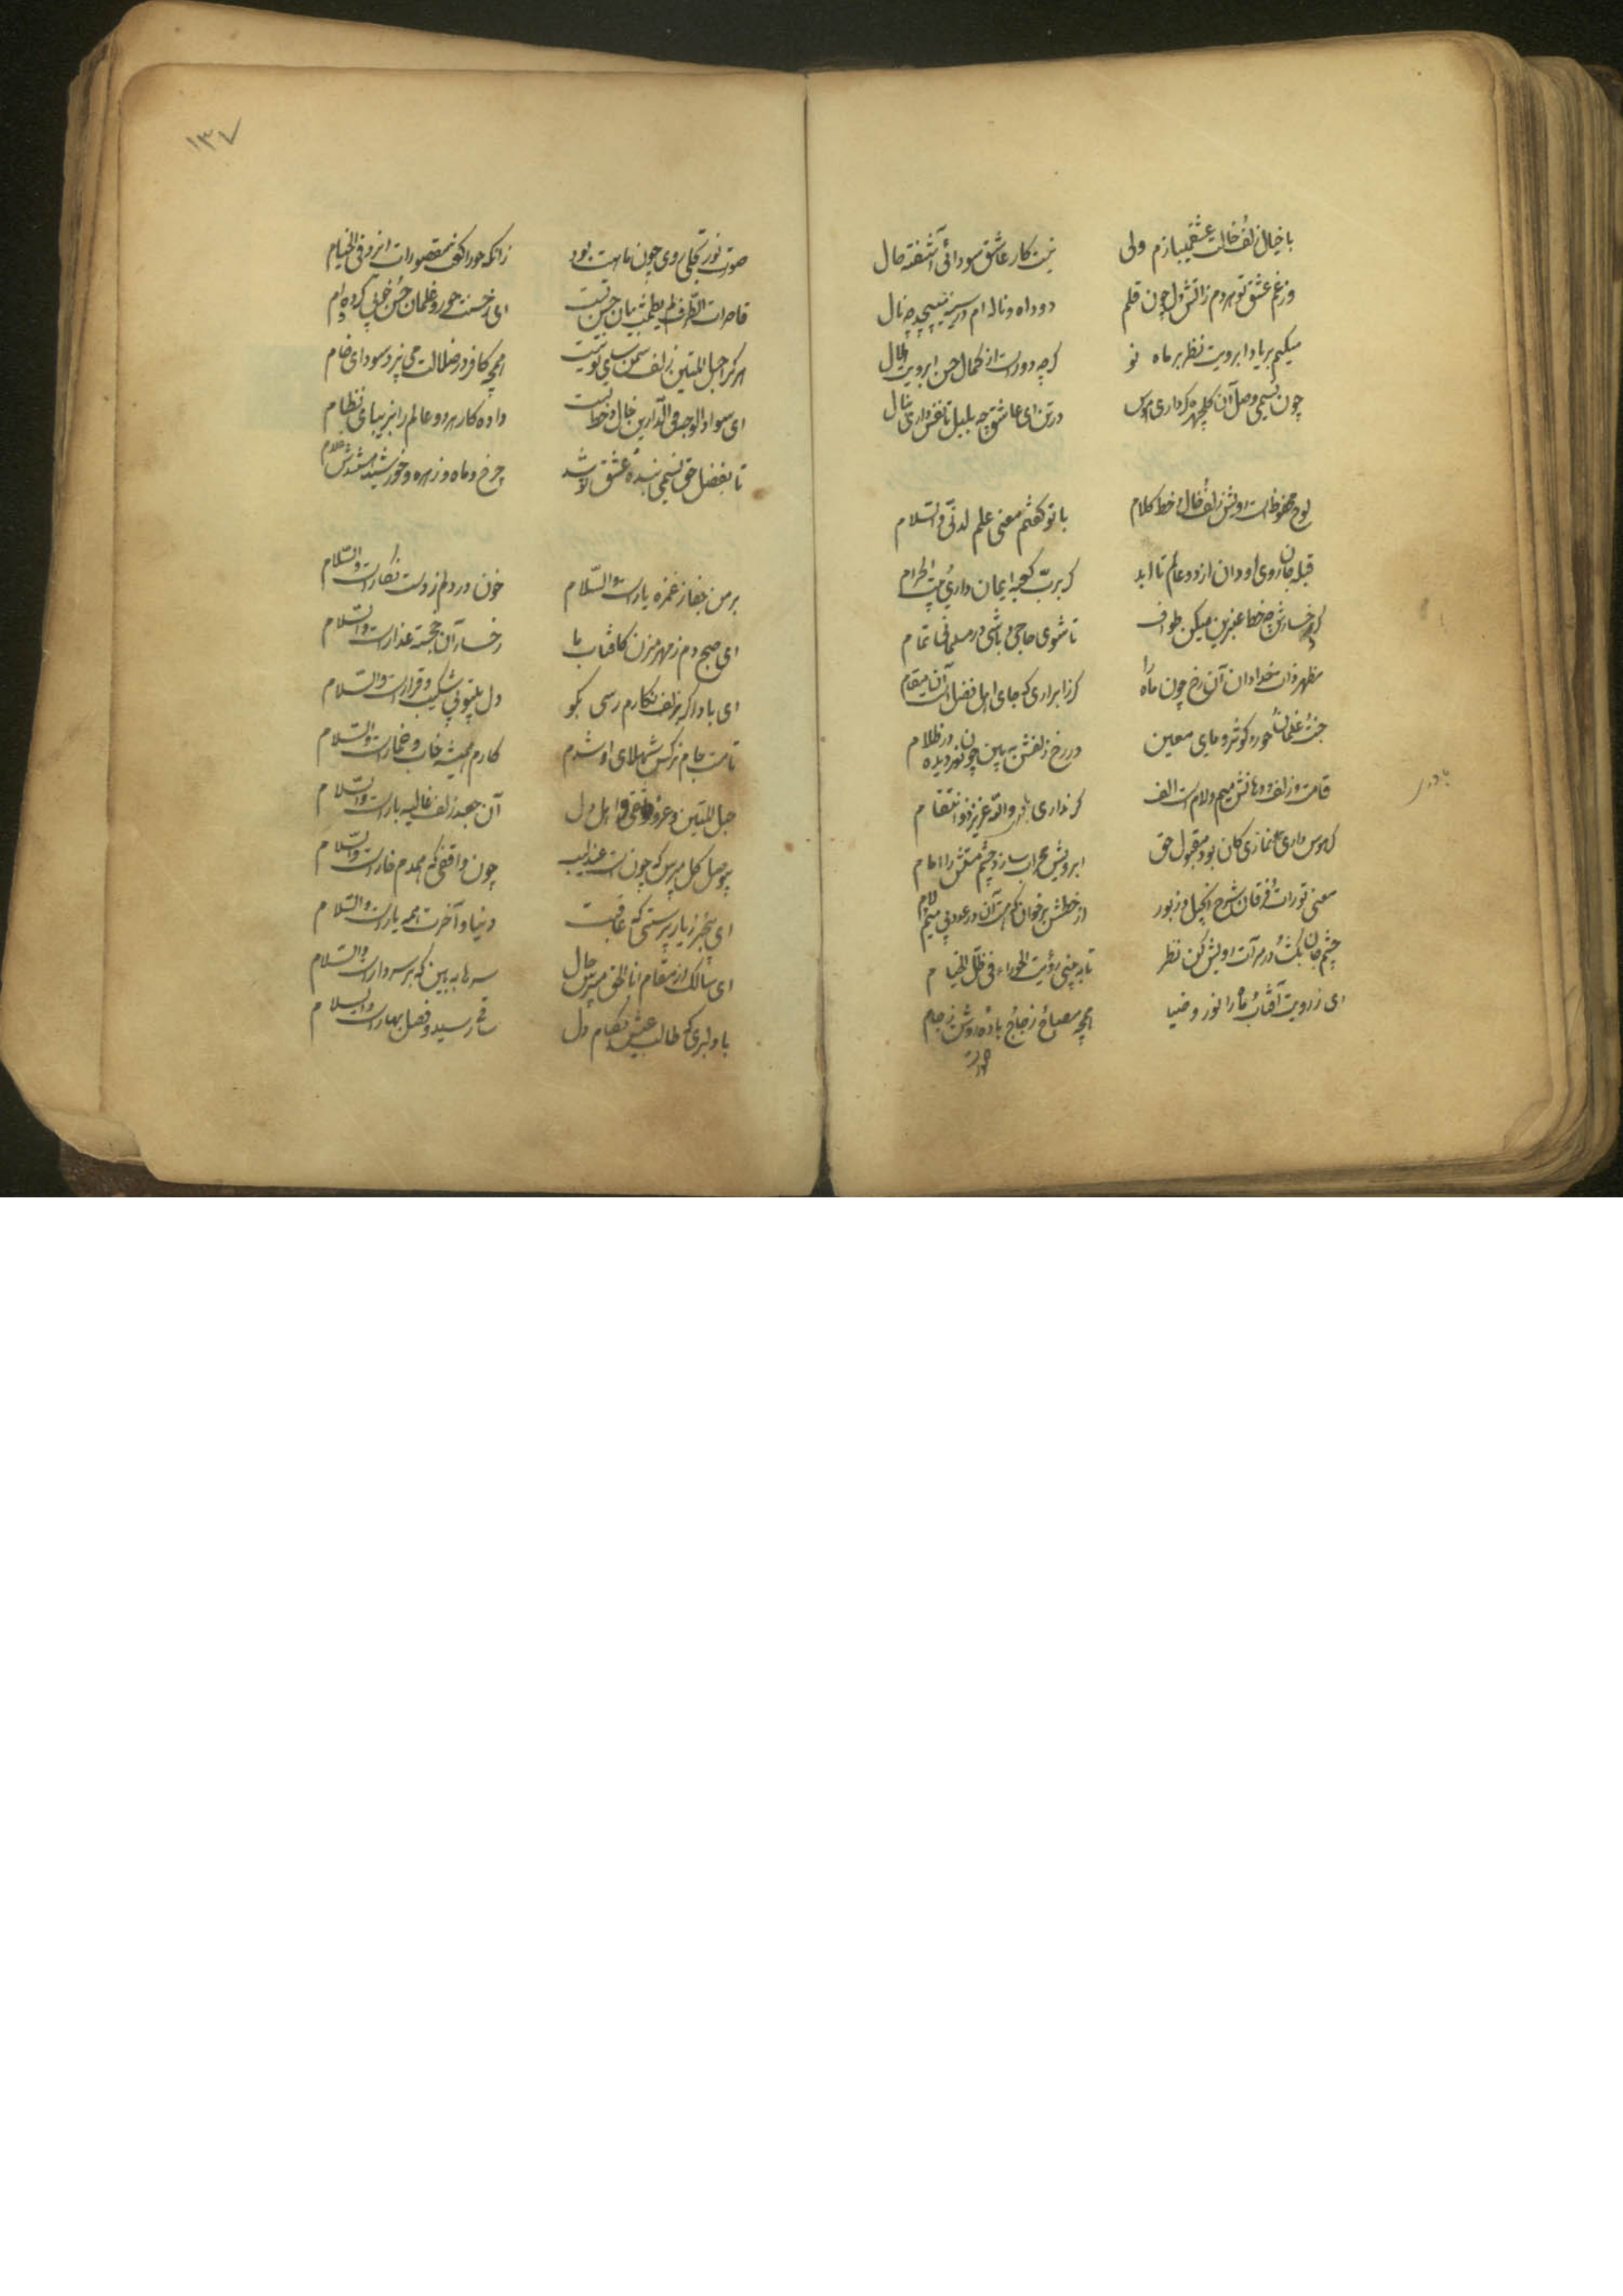 با خیال زلف و خالت عشق میبازم ولی نیست کار عاشق سودائی آشفته حال
وز غم عشق تو هر دم زآتش دل چون قلم دود آه و ناله ام در سینه می پیچد چو نال
میکنم بر یاد ابرویت نظر بر ماه نو گرچه دورست از کمال حسن ابرویت هلال
چون نسیمی وصل آن گلچهره گر داری هوس در تن ای عاشق چو بلبل تا نفس داری بنال
لوح محفوظ است رویش زلف و خال و خط کلام با تو گفتم معنی علم لدنّی والسّلام
قبله جان روی او دان از دو عالم تا ابد گر برب کعبه ایمان داری و بیت الحرام
گرد رخسارش چو خط عنبرین میکن طواف تا شوی حاجی و باشی در مسلمانی تمام
مظهر ذات خدا دان آن رخ چون ماه را گر ز ابراری که جای اهل فضل است آن مقام
جنت و غلمان و حور و کوثر و مای معین در رخ و زلفش ببین چون نور دیده در ظلام
قامت و زلف و دهانش میم و لام است و الف گر نداری باور والله عزیز ذو انتقام
باور
گر هوس داری نمازی کان بود مقبول حق ابرویش محراب ساز و چشم مستش را امام
معنی تورات و فرقان شرح انجیل و زبور از خطش برخوان که هست آن در عدد بی میم و لام
چشم جان بگشا و در مرآت رویش کن نظر تا ببینی رؤیت الحوراء فی ظلّ الخیام
ای ز رویت آفتاب و ماه را نور و ضیا همچو مصباح و زجاج باده روشن ز جام
صورت
۱۳۷
صورت نور تجلی روی چون ماهت بود زانکه حور العین مقصورات ازو فی الخیام
قاصرات الطرف لم یطمث بیان حسن تست ای ز حسنت حور و غلمان حسن و خوبی کرده وام
هرکرا حبل المتین زلف سمن سای تو نیست همچو کافر در ضلالت می پزد سودای خام
ای سواد الوجه فی الدارین خال و خط تست داده کار هر دو عالم را بزیبای نظام
تا بفضل حق نسیمی بنده عشق تو شد چرخ و ماه و زهره و خورشید هستندش غلام
بر من جفا ز غمزه یارست والسّلام خون در دلم ز دست نگارست والسّلام
ای صبح دم ز مهر مزن کافتاب ما رخسار آن خجسته عذارست والسّلام
ای باد اگر بزلف نگارم رسی بگو دل بیتو بی شکیب و قرارست والسّلام
تا مست جام نرگس شهلای او شدم کارم همیشه خواب و خمارست والسّلام
حبل المتین و عروه وثقی اهل دل آن جعد زلف غالیه بارست والسّلام
بی وصل گل مپرس که چون است عندلیب چون واقفی که همدم خارست والسّلام
ای بیخبر ز یار پرستی که عاقبت دنیا و آخرت همه یارست والسّلام
ای سالک از مقام انا الحق مپرس حال سرها ببین که بر سر دارست والسّلام
با دلبری که طالب عیشی بکام دل ساقی رسید و فصل بهارست والسّلام